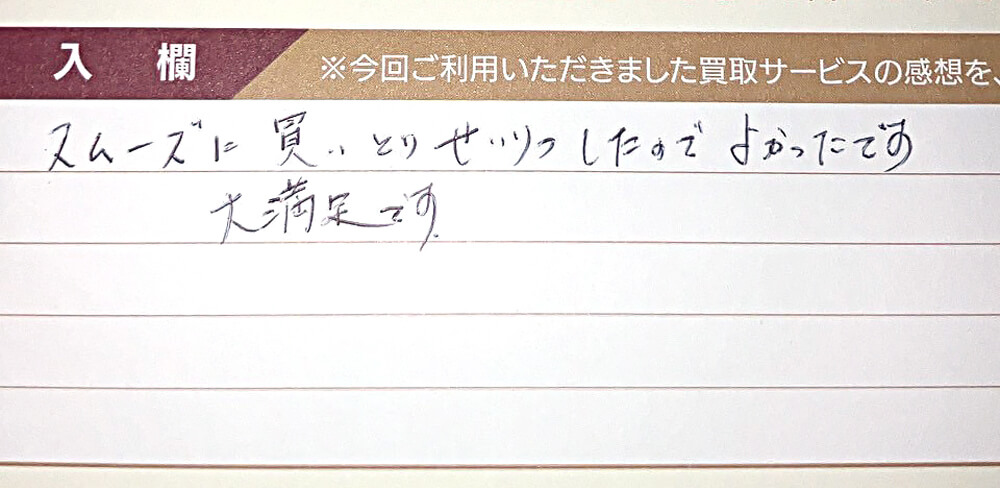 入欄
※今回ご利用いただきました買取サービスの感想を、
スムーズに買いとりせいりつしたのでよかったです
大満足です